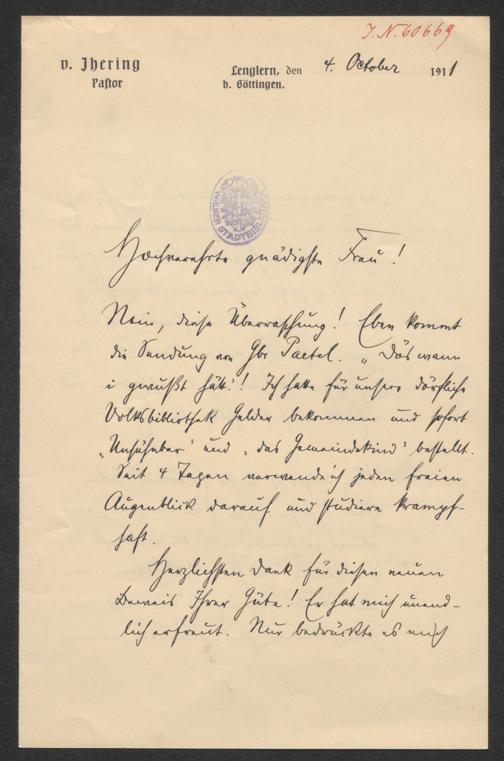 J. N. 60669
v. Jhering
Pastor
Lenglern, den 4. October 1911
b. Göttingen.
WIENER STADTBIBLIOTHEK
Hochverehrte gnädigste Frau!
Nein, diese Überraschung! Eben kommt
die Sendung von Gbr Paetel. „Däs wann
i gewußt hätt'! Ich hatte für unsere dörfliche
Volksbibliothek Gelder bekommen und sofort
„Unsühnbar" und „das Gemeindekind" bestellt.
Seit 4 Tagen verwende ich jeden freien
Augenblick darauf und studiere krampf-
haft.
Herzlichsten Dank für diesen neuen
Beweis Ihrer Güte! Er hat mich unend-
lich erfreut. Nur bedrückte es mich